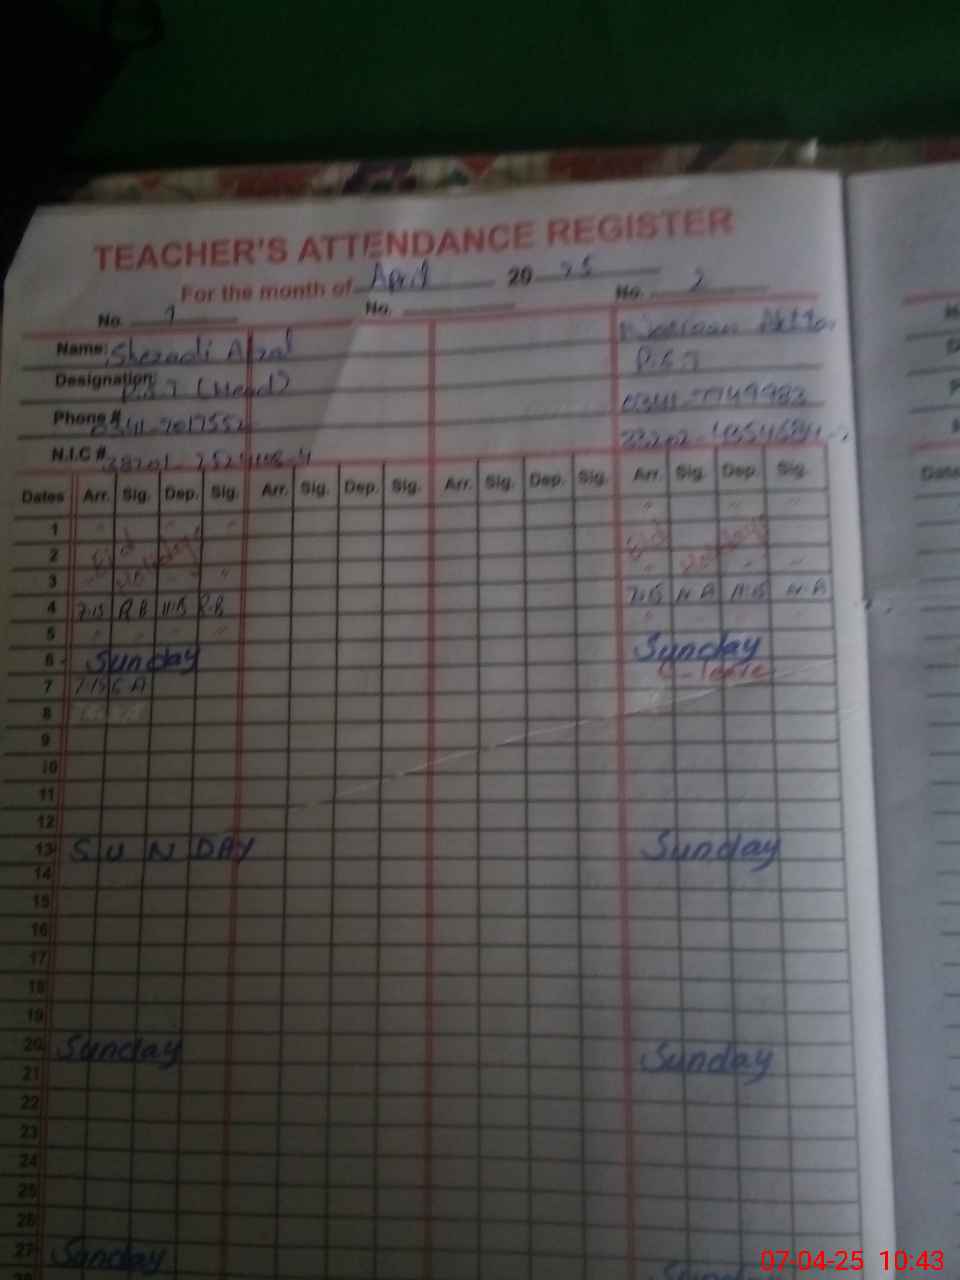 TEACHER'S ATTENDANCE REGISTER
For the month of April 20 25
No. 1 No. No. 2
Name: Shezadi Afzal
Designation: P.S.T (Head) P.S.T
Phone #
N.I.C #
Dates Arr. Sig. Dep. Sig. Arr. Sig. Dep. Sig. Arr. Sig. Dep. Sig. Arr. Sig. Dep. Sig.
1
2 Eid Holidays Eid Holidays
3
4 7:15 11:15 7:15 N.A 11:15 N.A
5
6 Sunday Sunday
7 7:15 C-leave
8
9
10
11
12
13 SUNDAY Sunday
14
15
16
17
18
19
20 Sunday Sunday
21
22
23
24
25
26
27 Sunday Sunday
07-04-25 10:43